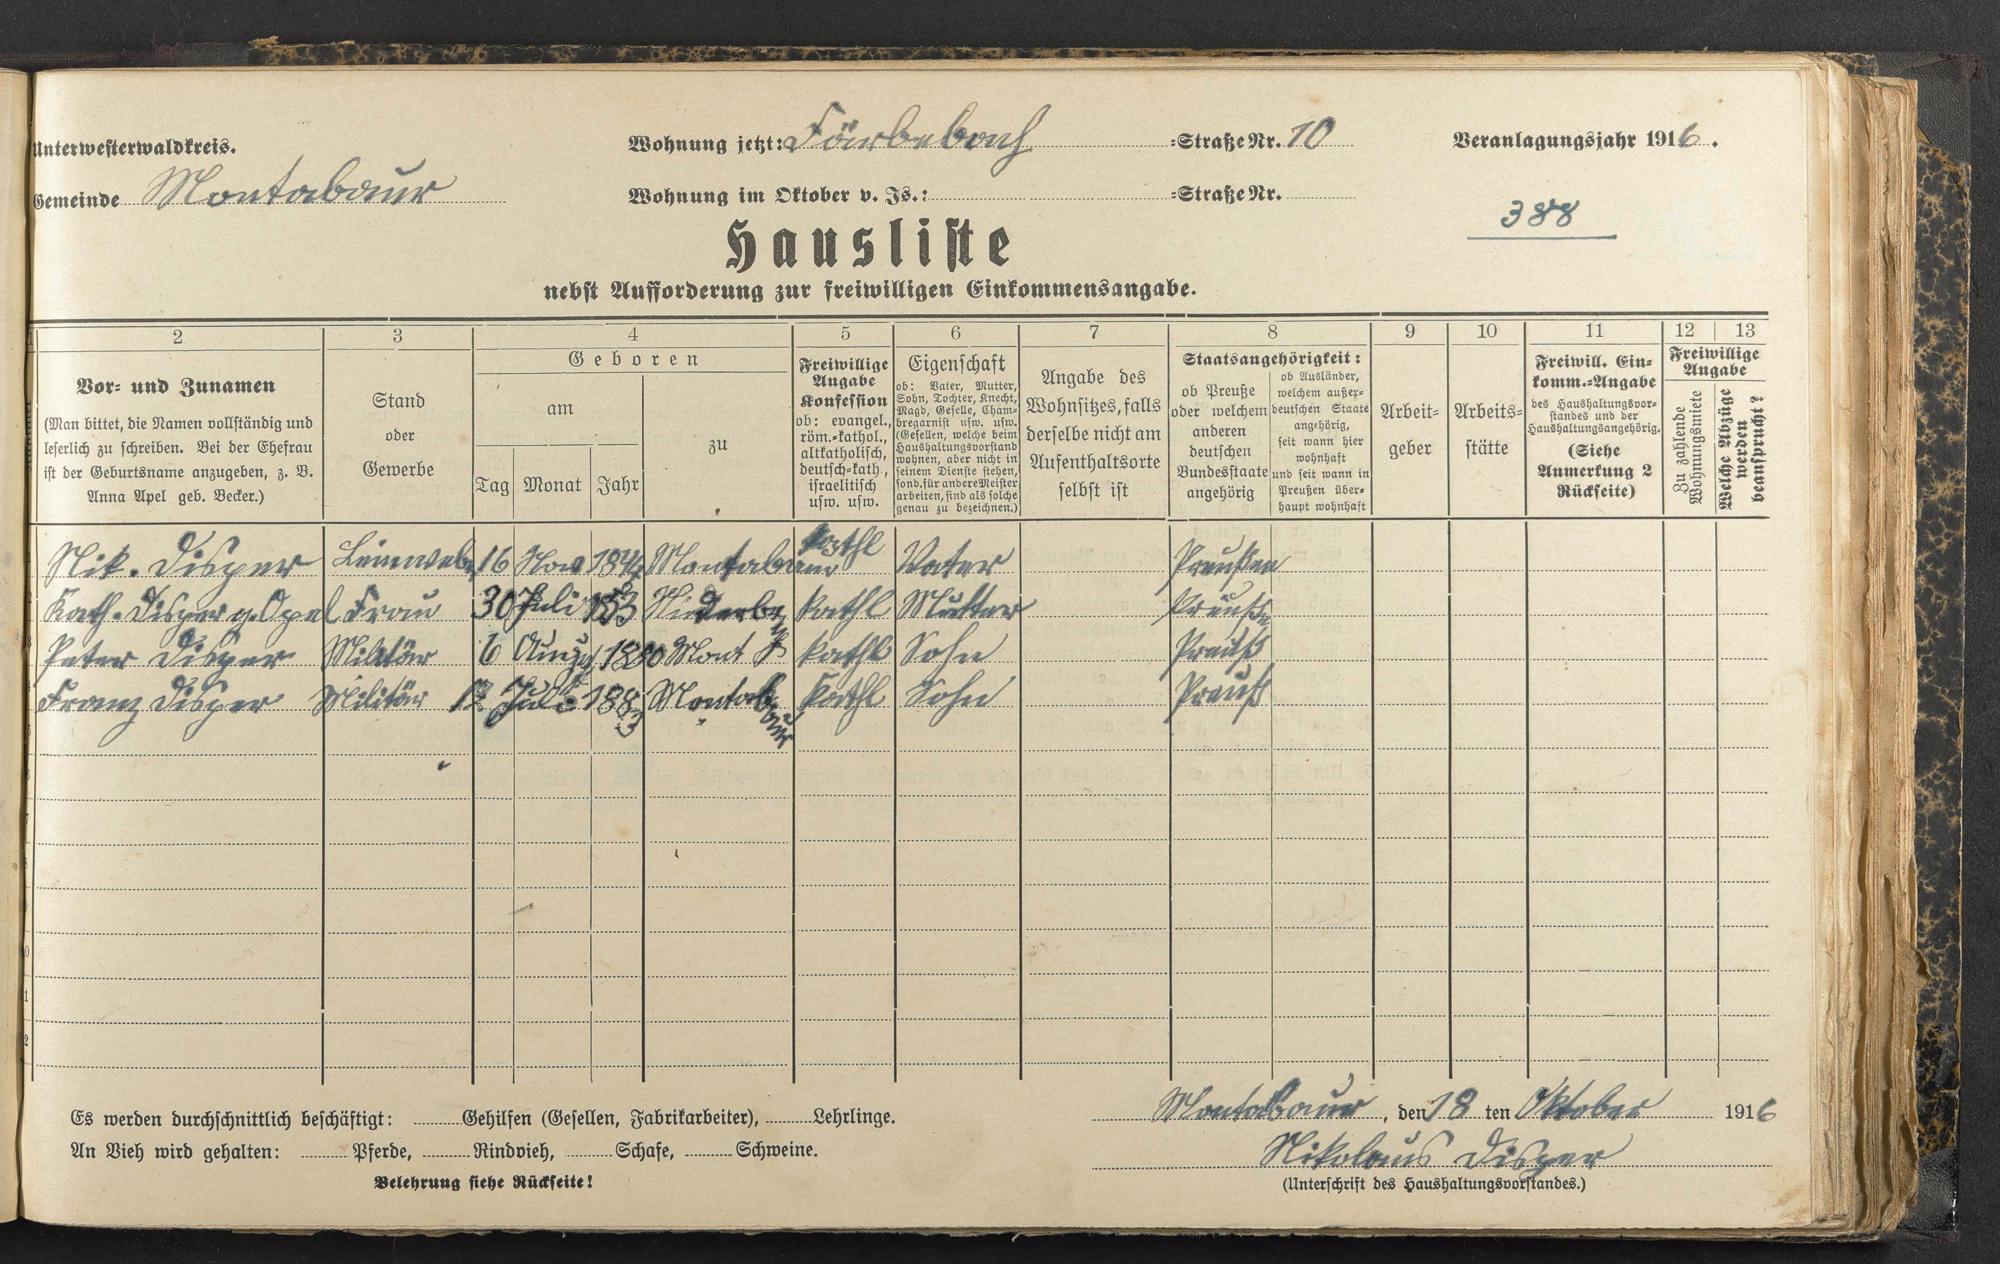 Unterwesterwaldkreis.
Gemeinde Montabaur
Wohnung jetzt: Färbebach =Straße Nr. 10
Wohnung im Oktober v. Js.: =Straße Nr.
Veranlagungsjahr 1916.
388
Hausliste
nebst Aufforderung zur freiwilligen Einkommensangabe.
2 3 4 5 6 7 8 9 10 11 12 13
Vor= und Zunamen
(Man bittet, die Namen vollständig und
leserlich zu schreiben. Bei der Ehefrau
ist der Geburtsname anzugeben, z. B.
Anna Apel geb. Becker.)
Stand
oder
Gewerbe
Geboren
am
Tag Monat Jahr
zu
Freiwillige
Angabe
Konfession
ob: evangel.,
röm.=kathol.,
altkatholisch,
deutsch=kath.,
israelitisch
usw. usw.
Eigenschaft
ob: Vater, Mutter,
Sohn, Tochter, Knecht,
Magd, Geselle, Cham=
bregarnist usw. usw.
(Gesellen, welche beim
Haushaltungsvorstand
wohnen, aber nicht in
seinem Dienste stehen,
sond. für andere Meister
arbeiten, sind als solche
genau zu bezeichnen.)
Angabe des
Wohnsitzes, falls
derselbe nicht am
Aufenthaltsorte
selbst ist
Staatsangehörigkeit:
ob Preuße
oder welchem
anderen
deutschen
Bundesstaate
angehörig
ob Ausländer,
welchem außer=
deutschen Staate
angehörig,
seit wann hier
wohnhaft
und seit wann in
Preußen über=
haupt wohnhaft
Arbeit=
geber
Arbeits=
stätte
Freiwill. Ein=
komm.=Angabe
des Haushaltungsvor=
standes und der
Haushaltungsangehörig.
(Siehe
Anmerkung 2
Rückseite)
Freiwillige
Angabe
Zu zahlende
Wohnungsmiete
Welche Abzüge
werden
beansprucht?
Nik. Disper Leinweber 16 Nov Montabaur kathl Vater Preußen
Kath. Disper g. Opel Frau 30 Juli kathl Mutter Preuße
Peter Disper Militär 6 1880 Mont kathl Sohn Preuß
Franz Disper Militär Juli 1883 Montabaur kathl Sohn Preuß
Es werden durchschnittlich beschäftigt: Gehilfen (Gesellen, Fabrikarbeiter), Lehrlinge.
An Vieh wird gehalten: Pferde, Rindvieh, Schafe, Schweine.
Belehrung siehe Rückseite!
Montabaur, den 18 ten Oktober 1916
Nikolaus Disper
(Unterschrift des Haushaltungsvorstandes.)